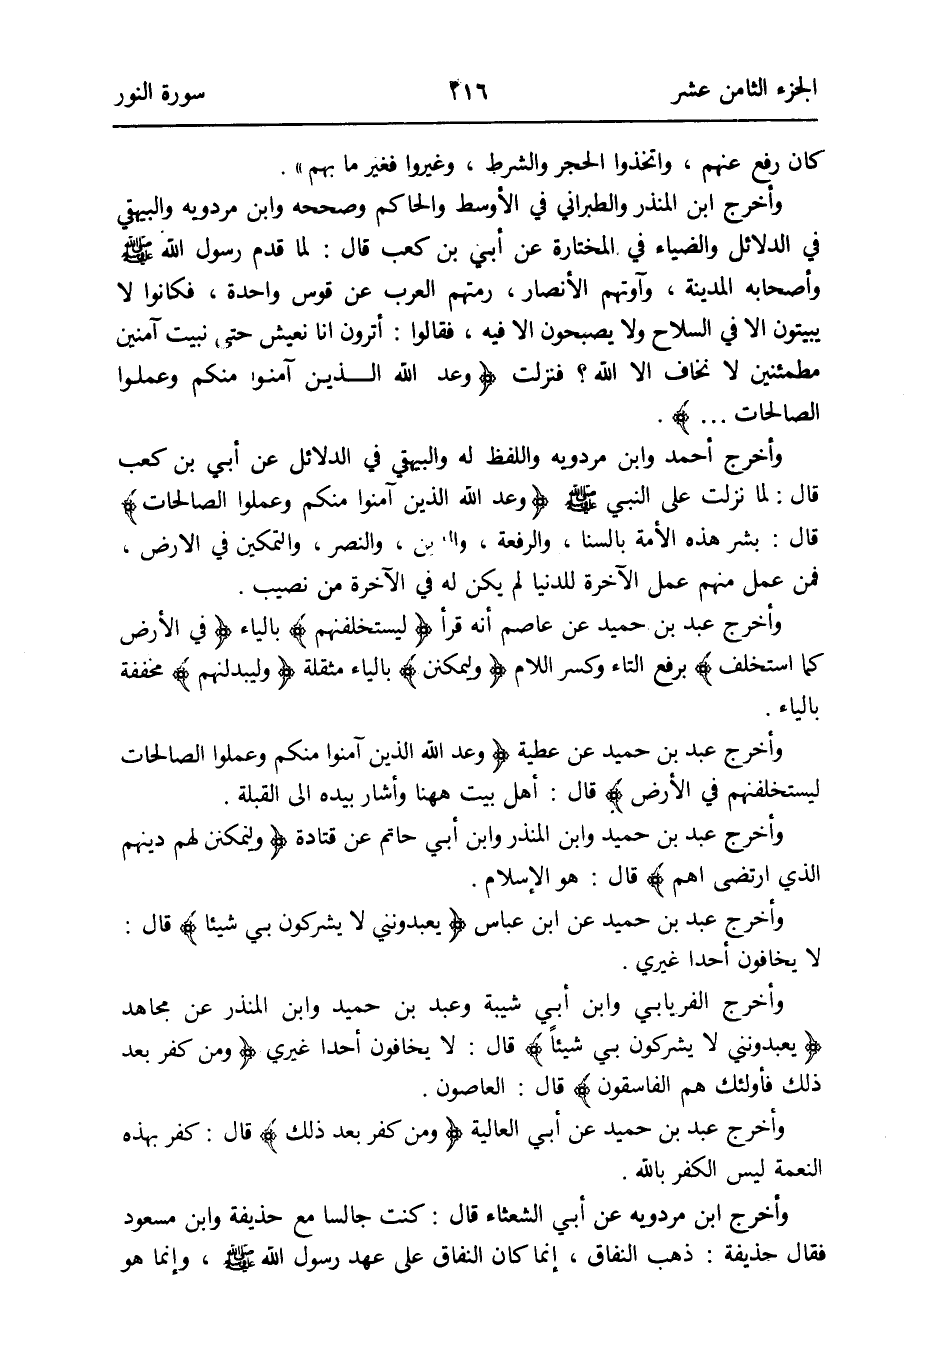 الجزء الثامن عشر ٢١٦ سورة النور
كان رفع عنهم ، واتخذوا الحجر والشرط ، وغيروا فغير ما بهم » .
وأخرج ابن المنذر والطبراني في الأوسط والحاكم وصححه وابن مردويه والبيهقي
في الدلائل والضياء في المختارة عن أبي بن كعب قال : لما قدم رسول الله ﷺ
وأصحابه المدينة ، وآوتهم الأنصار ، رمتهم العرب عن قوس واحدة ، فكانوا لا
يبيتون الا في السلاح ولا يصبحون الا فيه ، فقالوا : أترون انا نعيش حتى نبيت آمنين
مطمئنين لا نخاف الا الله ؟ فنزلت ﴿ وعد الله الــذين آمنوا منكم وعملوا
الصالحات ... ﴾ .
وأخرج أحمد وابن مردويه واللفظ له والبيهقي في الدلائل عن أبي بن كعب
قال : لما نزلت على النبي ﷺ ﴿ وعد الله الذين آمنوا منكم وعملوا الصالحات ﴾
قال : بشر هذه الأمة بالسنا ، والرفعة ، ، والنصر ، والتمكين في الارض ،
فمن عمل منهم عمل الآخرة للدنيا لم يكن له في الآخرة من نصيب .
وأخرج عبد بن حميد عن عاصم أنه قرأ ﴿ ليستخلفنهم ﴾ بالياء ﴿ في الأرض
كما استخلف ﴾ برفع التاء وكسر اللام ﴿ وليمكنن ﴾ بالياء مثقلة ﴿ وليبدلنهم ﴾ مخففة
بالياء .
وأخرج عبد بن حميد عن عطية ﴿ وعد الله الذين آمنوا منكم وعملوا الصالحات
ليستخلفنهم في الأرض ﴾ قال : أهل بيت ههنا وأشار بيده الى القبلة .
وأخرج عبد بن حميد وابن المنذر وابن أبي حاتم عن قتادة ﴿ وليمكنن لهم دينهم
الذي ارتضى اهم ﴾ قال : هو الإسلام .
وأخرج عبد بن حميد عن ابن عباس ﴿ يعبدونني لا يشركون بي شيئا ﴾ قال :
لا يخافون أحدا غيري .
وأخرج الفريابي وابن أبي شيبة وعبد بن حميد وابن المنذر عن مجاهد
﴿ يعبدونني لا يشركون بي شيئاً ﴾ قال : لا يخافون أحدا غيري ﴿ ومن كفر بعد
ذلك فأولئك هم الفاسقون ﴾ قال : العاصون .
وأخرج عبد بن حميد عن أبي العالية ﴿ ومن كفر بعد ذلك ﴾ قال : كفر بهذه
النعمة ليس الكفر بالله .
وأخرج ابن مردويه عن أبي الشعثاء قال : كنت جالسا مع حذيفة وابن مسعود
فقال حذيفة : ذهب النفاق ، إنما كان النفاق على عهد رسول الله ﷺ ، وإنما هو